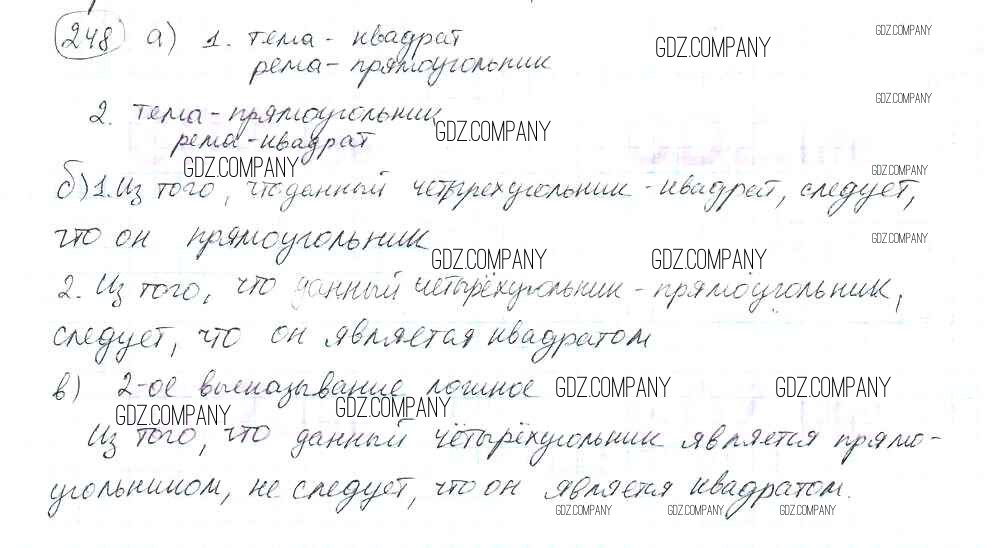 248 а) 1. тема - квадрат
GDZ.COMPANY
GDZ.COMPANY
рема - прямоугольник
GDZ.COMPANY
2. тема - прямоугольник
GDZ.COMPANY
рема - квадрат
GDZ.COMPANY
GDZ.COMPANY
б) 1. Из того, что данный четырехугольник - квадрат, следует,
что он прямоугольник
GDZ.COMPANY
GDZ.COMPANY
GDZ.COMPANY
2. Из того, что данный четырёхугольник - прямоугольник,
следует, что он является квадратом
в) 2-ое высказывание ложное
GDZ.COMPANY
GDZ.COMPANY
GDZ.COMPANY
GDZ.COMPANY
Из того, что данный четырёхугольник является прямо-
угольником, не следует, что он является квадратом.
GDZ.COMPANY
GDZ.COMPANY
GDZ.COMPANY